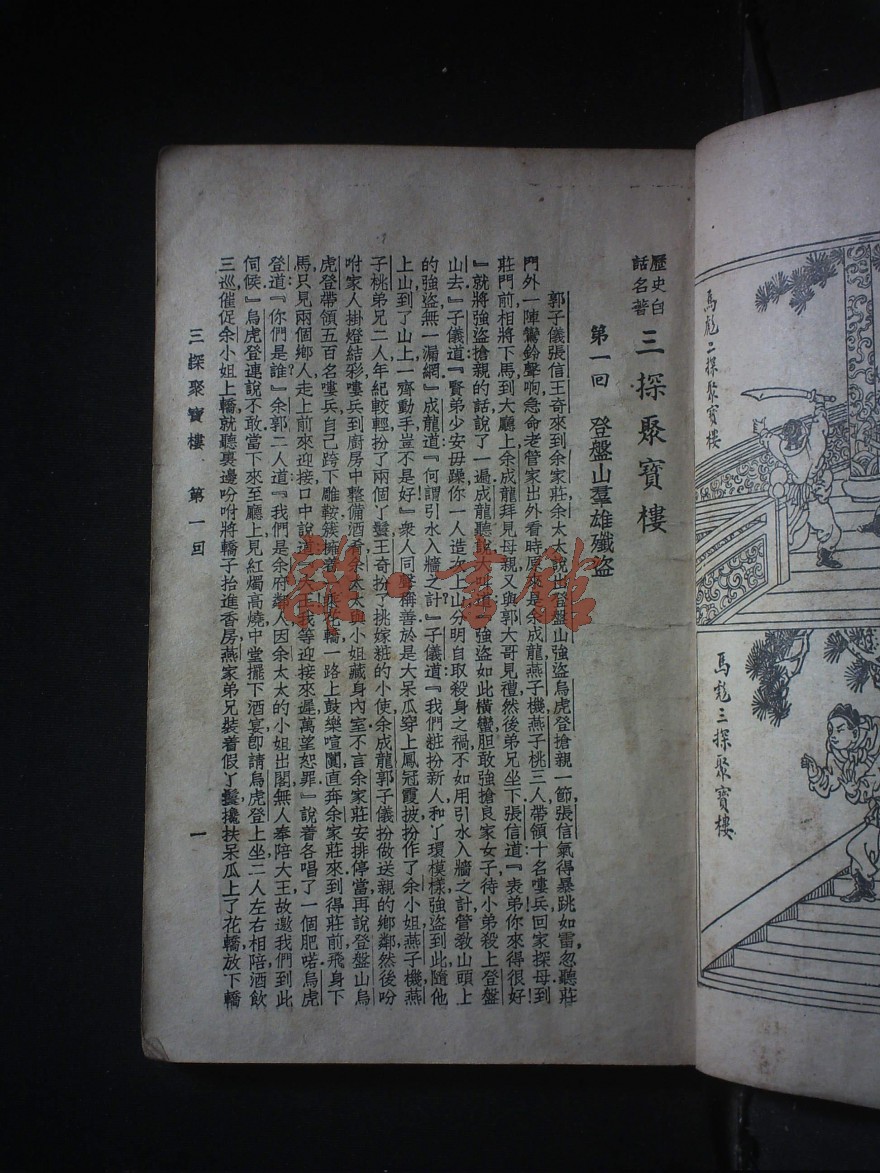 馬彪二探聚寶樓
馬彪三探聚寶樓
歷史白
話名著
三探聚寶樓
第一回 登盤山羣雄殲盜
郭子儀張信王奇來到余家莊余太太說出登盤山強盜烏虎登搶親一節,張信氣得暴跳如雷,忽聽莊
門外一陣鸞鈴聲响,急命老管家出外看時,原來是余成龍燕子機燕子桃三人,帶領十名嘍兵回家探母,到
莊門前相將下馬,到大廳上余成龍拜見母親,又與郭大哥見禮,然後弟兄坐下,張信道『表弟你來得很好!
』就將強盜搶親的話說了一遍,成龍聽說大叫道『強盜如此橫蠻,胆敢強搶良家女子,待小弟殺上登盤
山去』子儀道『賢弟少安毋躁,你一人造次上山,分明自取殺身之禍,不如用引水入牆之計,管教山頭上
的強盜無一漏網』成龍道『何謂引水入牆之計』子儀道『我們粧扮新人和了環模樣,強盜到此,隨他
上山,到了山上一齊動手,豈不是好』衆人同聲稱善,於是大呆瓜穿上鳳冠霞披,扮作了余小姐,燕子機燕
子桃弟兄二人年紀較輕,扮了兩個丫鬟,王奇扮了挑嫁粧的小使,余成龍郭子儀扮做送親的鄉鄰,然後吩
咐家人掛燈結彩,嘍兵到廚房中整備酒肴,余太太與小姐藏身內室,不言余家莊安排停當,再說登盤山烏
虎登帶領五百名嘍兵,自己跨下雕鞍,簇擁着一乘花轎,一路上鼓樂喧闐,直奔余家莊來,到得莊前,飛身下
馬,只見兩個鄉人走上前來迎接,口中說道『大王,我等迎接來遲,萬望恕罪』說着各唱了一個肥喏,烏虎
登道:『你們是誰』余郭二人道:『我們是余府鄰人,因余太太的小姐出閣,無人奉陪大王,故邀我們到此
伺候』烏虎登連說不敢當,下來至廳上,見紅燭高燒,中堂擺下酒宴,卽請烏虎登上坐,二人左右相陪,酒飲
三巡,催促余小姐上轎,就聽裏邊吩咐將轎子抬進香房,燕家弟兄裝着假丫鬟,攙扶呆瓜上了花轎,放下轎
三探聚寶樓 第一回
一
雜·書館